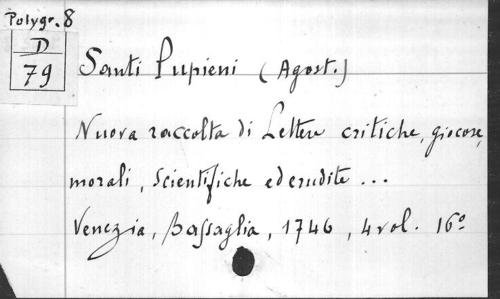 Polygr. 8
D
79
Santi Pupieni (Agost.)
Nuova raccolta di Lettere critiche, giocose,
morali, Scientifiche ed erudite ...
Venezia, Bassaglia, 1746, 4 vol. 16º